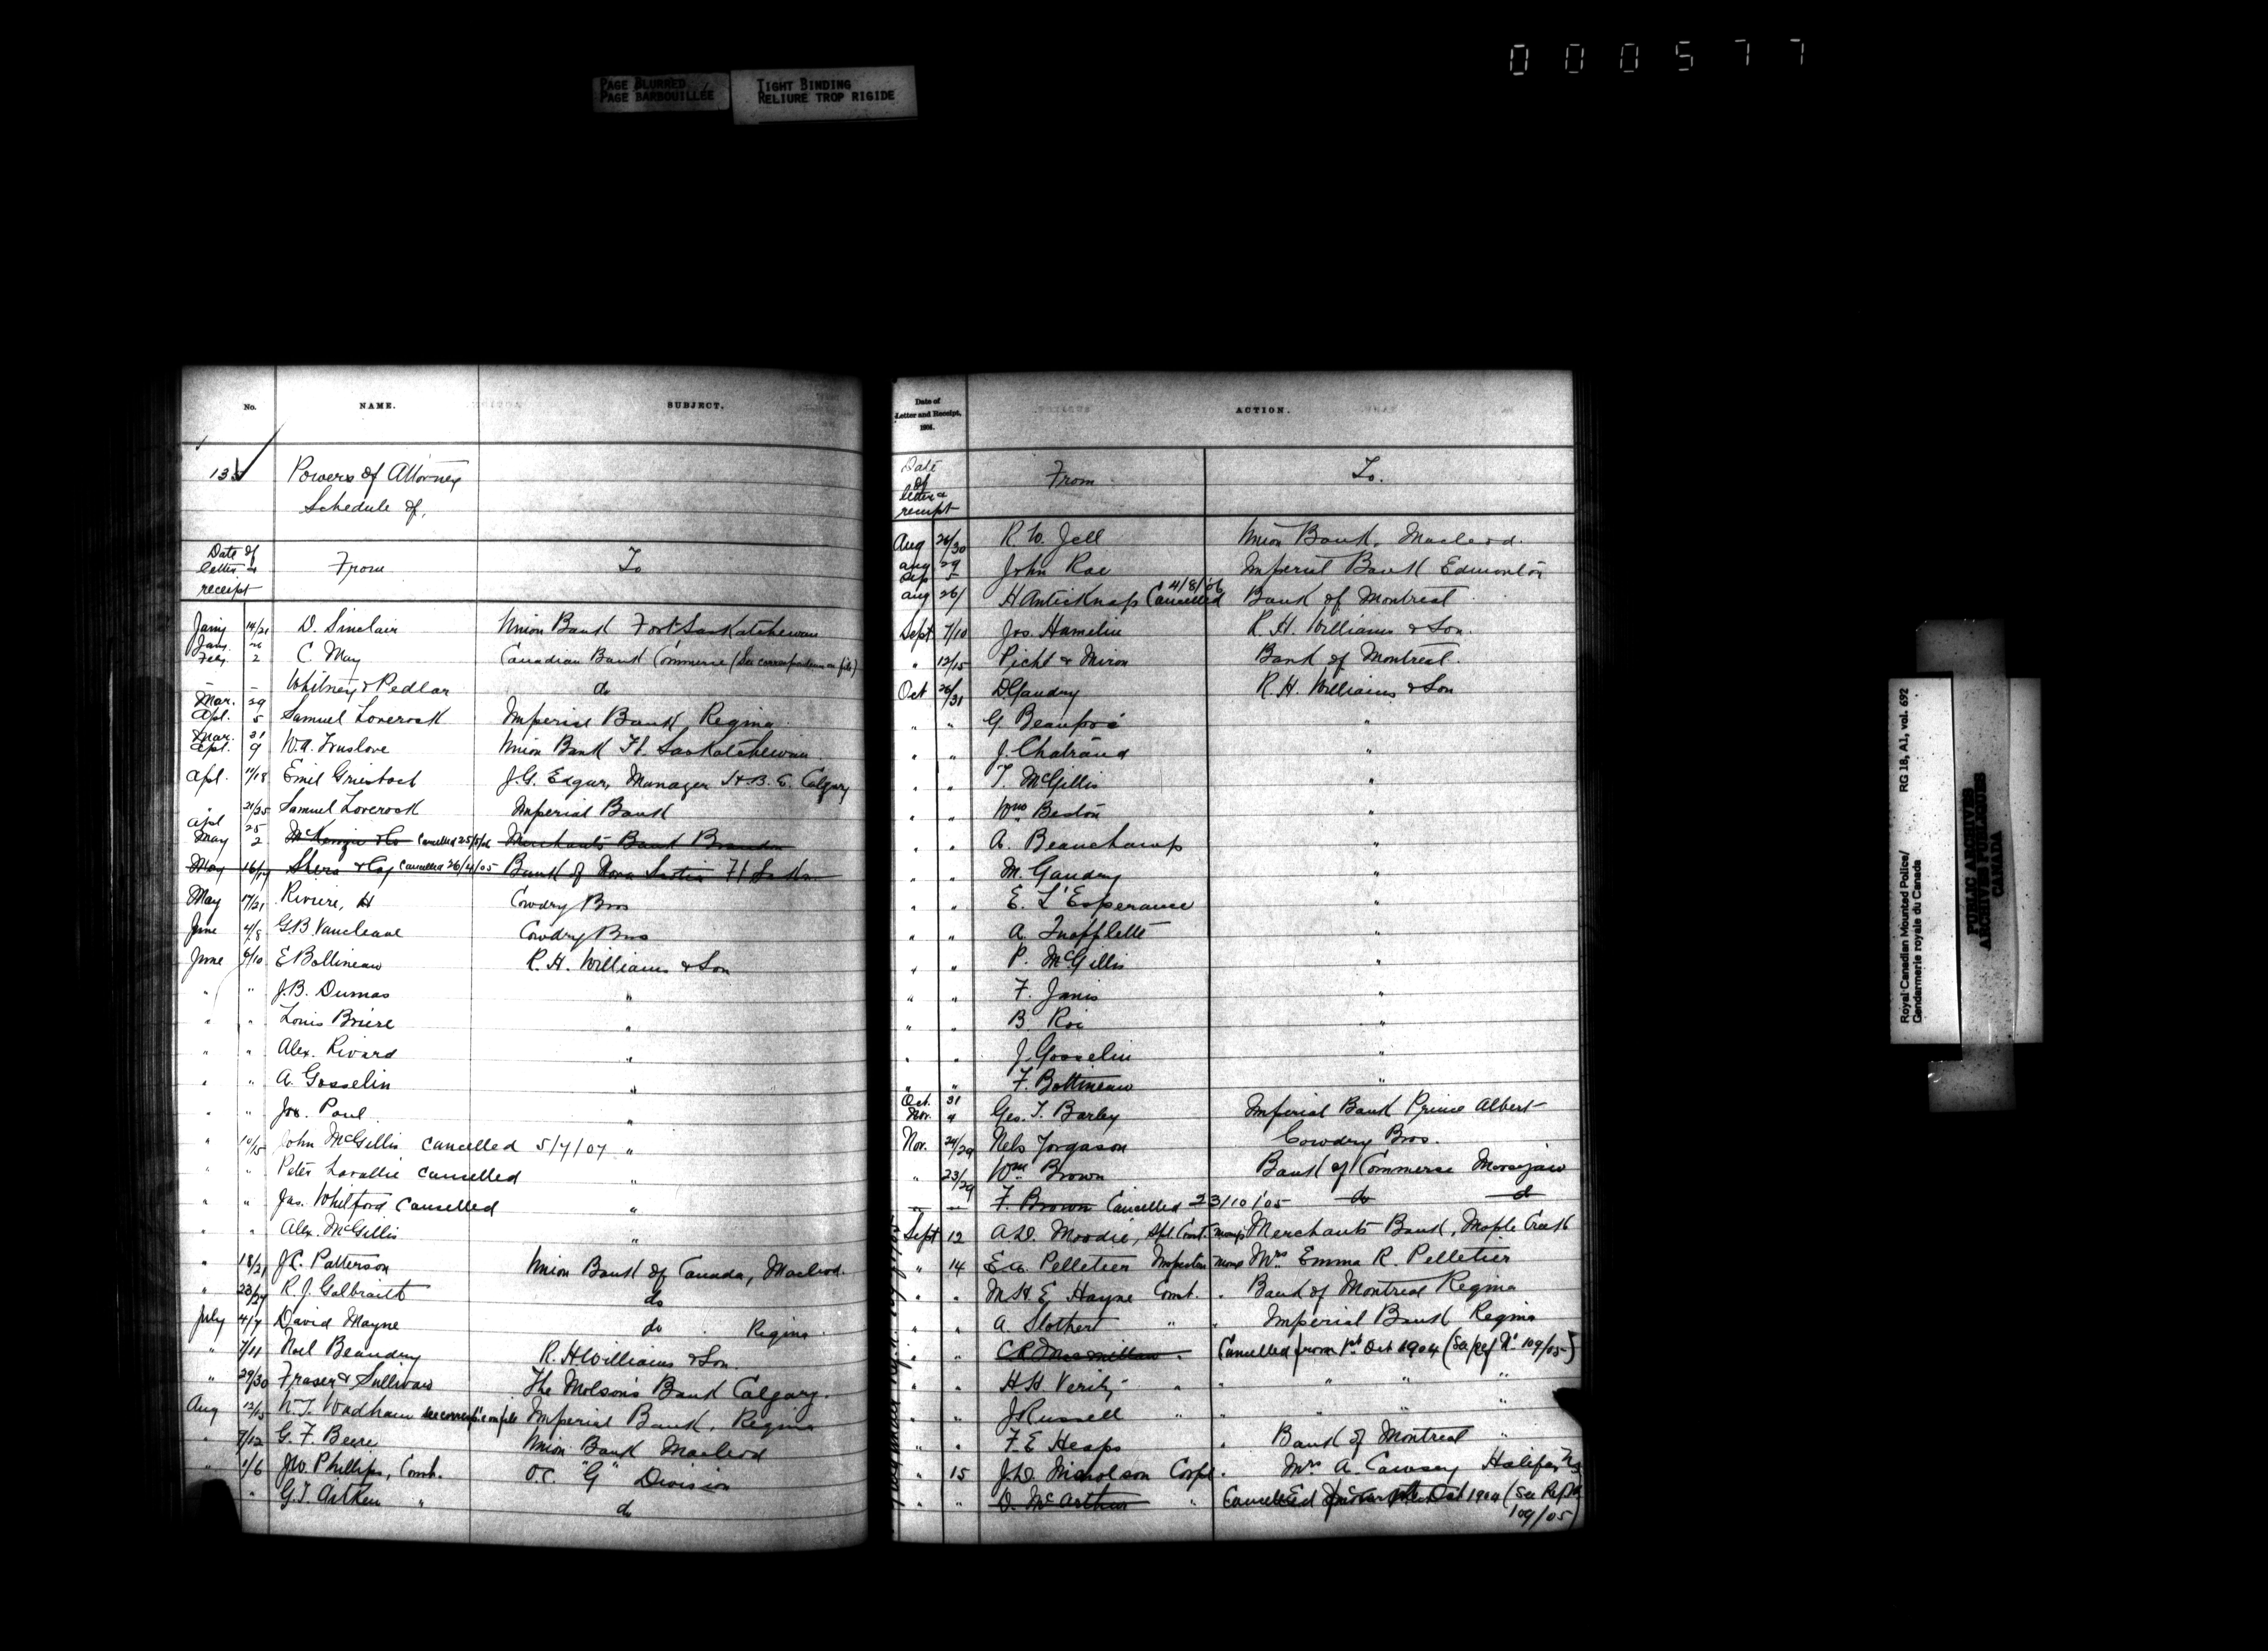 000577
PAGE BLURRED
PAGE BARBOUILLÉE
TIGHT BINDING
RELIURE TROP RIGIDE
No. NAME. SUBJECT.
135 Powers of Attorney
Schedule of,
Date of
letter &
receipt From To
Jany 14/21 D. Sinclair Union Bank Fort Saskatchewan
Jany. 26
Feby. 2 C. May Canadian Bank Commerce (See correspondence on file)
— — Whitney & Pedlar do
Mar. 29
Apl. 5 Samuel Loverock Imperial Bank, Regina
Mar. 31
Apl. 9 W.A. Truslove Union Bank Ft. Saskatchewan
Apl. 11/18 Emil Griesbach J.G. Edgar, Manager H.B.C. Calgary
" 21/25 Samuel Loverock Imperial Bank
Apl 25
May 2 McKenzie & Co Cancelled Merchants Bank Brandon
May 16/19 Shera & Coy Cancelled 26/4/05 Bank of Nova Scotia Ft Sask
May 17/21 Riviere, H Cowdry Bros
June 4/8 G B Vancleave Cowdry Bros
June 6/10 E Bottineau R. H. Williams & Son
" " J.B. Dumas "
" " Louis Briere "
" " Alex. Rivard "
" " A. Gosselin "
" " Jos. Paul "
" 10/15 John McGillis Cancelled 5/7/07 "
" " Peter Lavallie Cancelled "
" " Jas. Whitford Cancelled "
" " Alex. McGillis "
" 18/21 J.C. Patterson Union Bank of Canada, Macleod.
" 23/27 R. J. Galbraith do
July 4/7 David Mayne do Regina.
" 7/11 Noel Beaudry R. H Williams & Son.
" 29/30 Fraser & Sullivan The Molsons Bank Calgary.
Aug 12/15 W.T. Wadham see corresp'ce on file Imperial Bank, Regina
" 7/12 G. F. Beere Union Bank Macleod
" 1/6 J.W. Phillips, Const. O.C. "G" Division
" G.T. Aitken " do
Date of
Letter and Receipt,
1904. ACTION.
Date
of
letter &
receipt From To.
Aug 26/30 R. W. Jell Union Bank, Macleod.
Aug 29
Sep 5 John Rae Imperial Bank Edmonton
4/8/06
Aug 26/ H Antick nap Cancelled Bank of Montreal
Sept 7/10 Jos. Hamelin R. H. Williams & Son.
" 12/15 Piché & Miron Bank of Montreal.
Oct 26/31 D. Gaudry R. H. Williams & Son
" " G Beaupré "
" " J. Chatrand "
" " T. McGillis "
" " Wm Beston "
" " A. Beauchamp "
" " M. Gaudry "
" " E. L'Esperance "
" " A. "
" " P. McGillis "
" " F. Janis "
" " B Roi "
" " J. Gosselin "
" " F. Bottineau "
Oct. 31
Nov. 4 Geo. T. Barley Imperial Bank Prince Albert
Nov. 24/29 Nels Jorgason Cowdry Bros.
" 23/29 Wm Brown Bank of Commerce Moosejaw
— — F. Brown Cancelled 23/10/'05 do do
Sept 12 A.D. Moodie, Spl. Const. Merchants Bank, Maple Creek
" 14 E.A. Pelletier Inspector Mrs Emma R. Pelletier
" " M.H.E Hayne Const. " Bank of Montreal Regina
" " A. Slothert " " Imperial Bank Regina
" " C.R. Macmillan " Cancelled from 1st Oct 1904 (See Ref No 109/05)
" " H H Verity " " " " "
" " J Russell " " " " "
" " F. E Heaps " Bank of Montreal "
" 15 J.D. Nicholson Corpl. Mrs A. Cawsey Halifax NS
" " D. McArthur " Cancelled Oct 1904 (See Ref No
109/05)
Royal Canadian Mounted Police/
Gendarmerie royale du Canada
RG 18, A1, vol. 692
PUBLIC ARCHIVES
ARCHIVES PUBLIQUES
CANADA